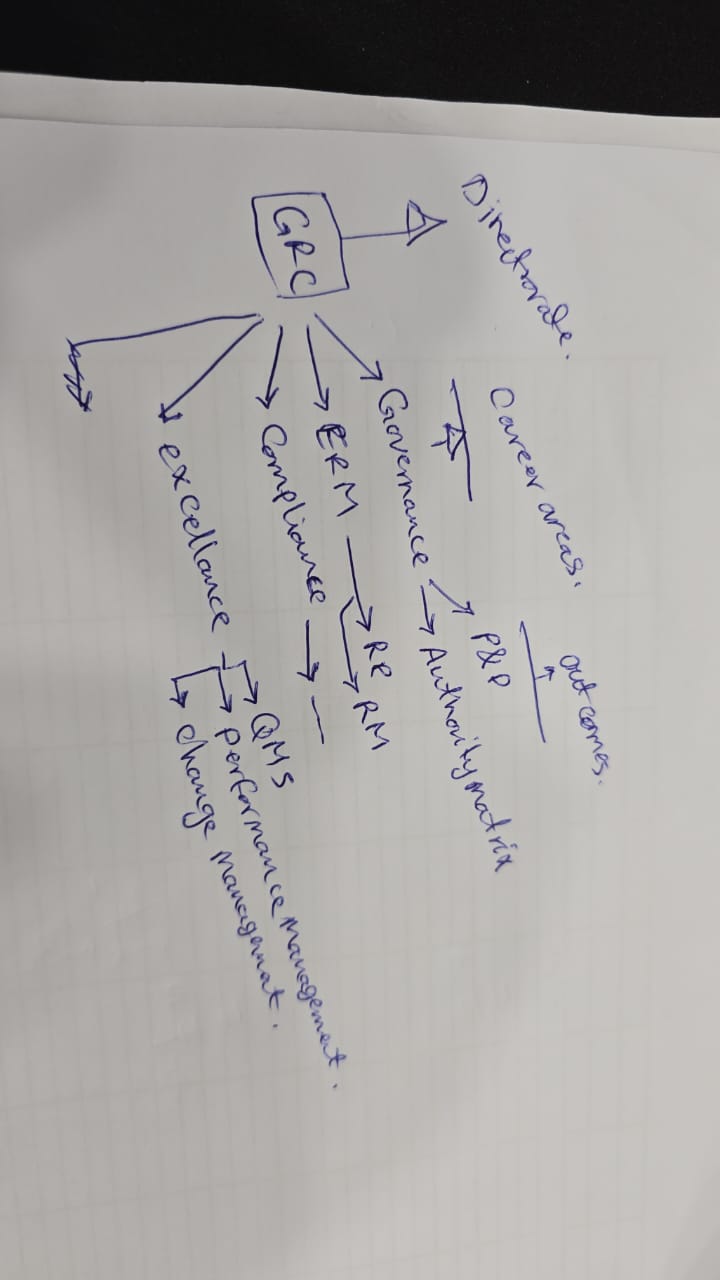 Directorate.
Career areas.
outcomes.
GRC
Governance
P&P
Authority matrix
ERM
RR
RM
Compliance
excellance
QMS
performance management.
change management.